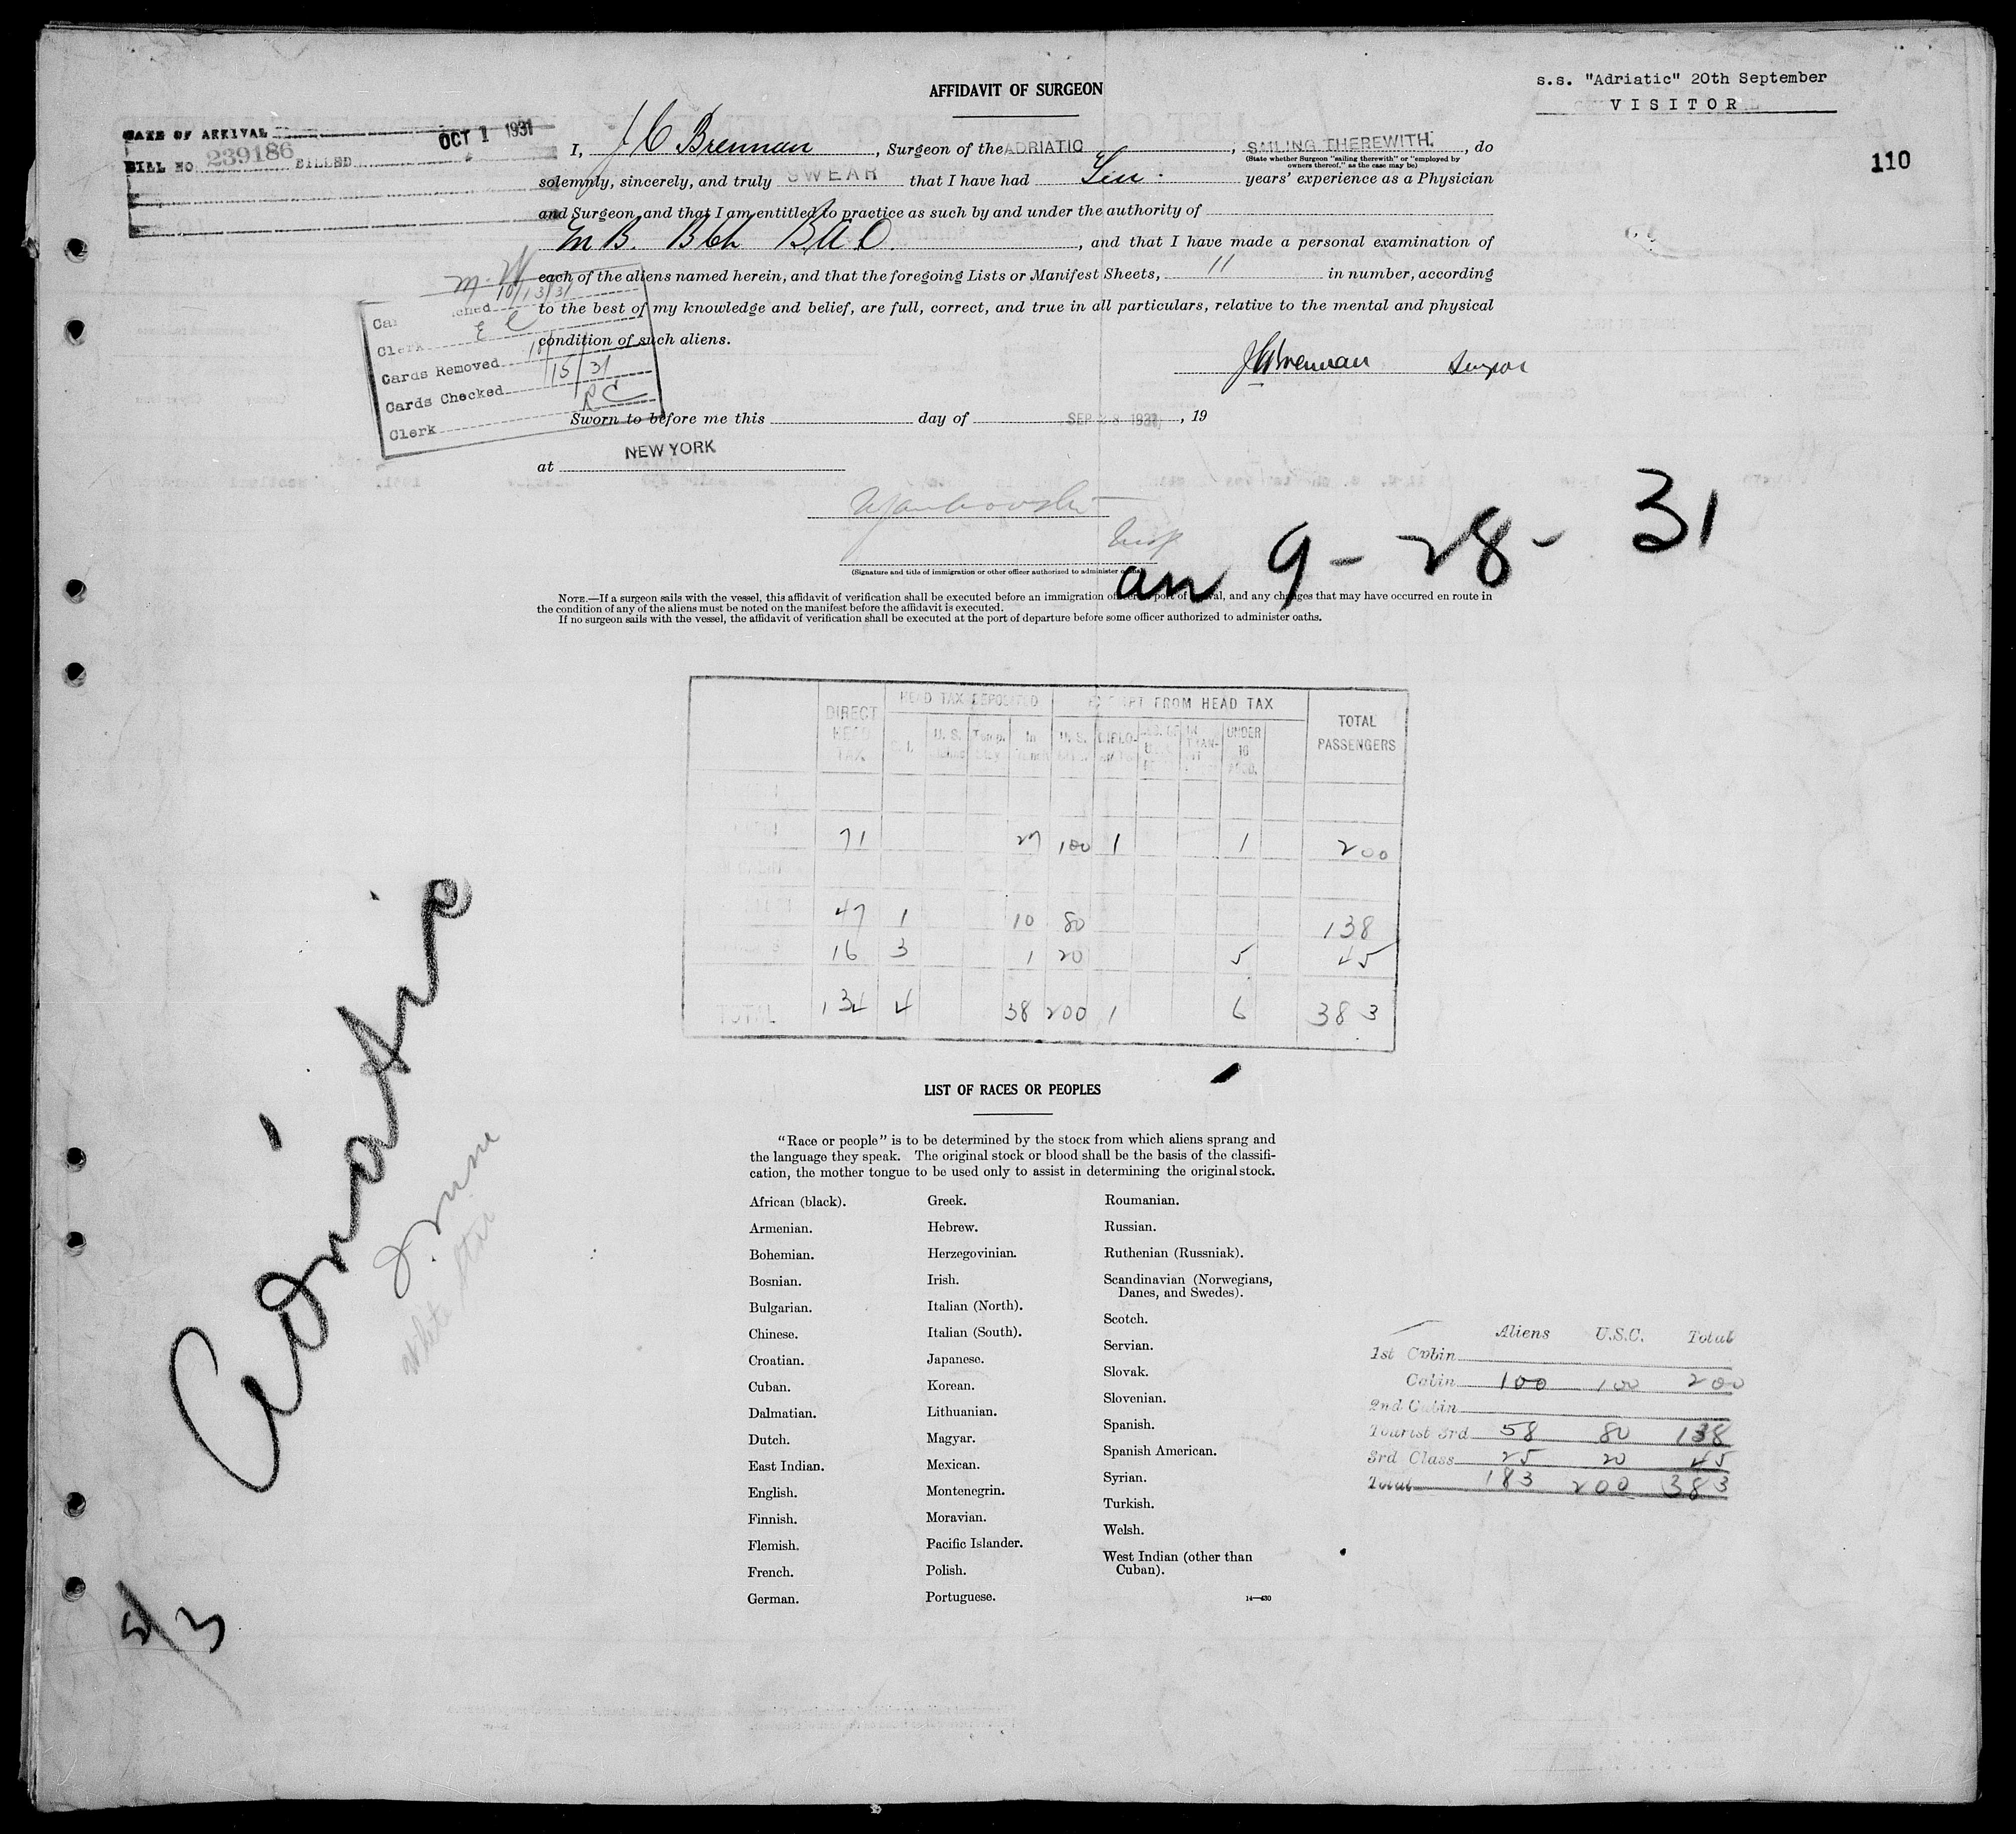 s.s. "Adriatic" 20th September
VISITOR
110
DATE OF ARRIVAL OCT 1 1931
BILL NO. 239186 BILLED
AFFIDAVIT OF SURGEON
I, J C Brennan, Surgeon of the ADRIATIC, SAILING THEREWITH., do
(State whether Surgeon "sailing therewith" or "employed by
owners thereof," as the case may be)
solemnly, sincerely, and truly SWEAR that I have had Ten years' experience as a Physician
and Surgeon, and that I am entitled to practice as such by and under the authority of
M B. B Ch B A O., and that I have made a personal examination of
each of the aliens named herein, and that the foregoing Lists or Manifest Sheets, 11 in number, according
to the best of my knowledge and belief, are full, correct, and true in all particulars, relative to the mental and physical
condition of such aliens.
JCBrennan Surgeon
10/13/31
Clerk E C
Cards Removed
Cards Checked 15/31
Clerk RC
Sworn to before me this day of SEP 28 1931, 19
at NEW YORK
Insp
(Signature and title of immigration or other officer authorized to administer oaths)
an 9-28-31
NOTE.—If a surgeon sails with the vessel, this affidavit of verification shall be executed before an immigration officer at port of arrival, and any changes that may have occurred en route in
the condition of any of the aliens must be noted on the manifest before the affidavit is executed.
If no surgeon sails with the vessel, the affidavit of verification shall be executed at the port of departure before some officer authorized to administer oaths.
DIRECT HEAD TAX HEAD TAX DEPOSITED EXEMPT FROM HEAD TAX TOTAL PASSENGERS
U. S. In U. S. DIPLO- UNDER 16
71 27 100 1 1 200
47 1 10 80 138
16 3 1 20 5 45
TOTAL 134 4 38 200 1 6 383
Adriatic
White Star
5/3
LIST OF RACES OR PEOPLES
"Race or people" is to be determined by the stock from which aliens sprang and
the language they speak. The original stock or blood shall be the basis of the classifi-
cation, the mother tongue to be used only to assist in determining the original stock.
African (black).
Armenian.
Bohemian.
Bosnian.
Bulgarian.
Chinese.
Croatian.
Cuban.
Dalmatian.
Dutch.
East Indian.
English.
Finnish.
Flemish.
French.
German.
Greek.
Hebrew.
Herzegovinian.
Irish.
Italian (North).
Italian (South).
Japanese.
Korean.
Lithuanian.
Magyar.
Mexican.
Montenegrin.
Moravian.
Pacific Islander.
Polish.
Portuguese.
Roumanian.
Russian.
Ruthenian (Russniak).
Scandinavian (Norwegians,
Danes, and Swedes).
Scotch.
Servian.
Slovak.
Slovenian.
Spanish.
Spanish American.
Syrian.
Turkish.
Welsh.
West Indian (other than
Cuban).
14—430
Aliens U.S.C. Total
1st Cabin
Cabin 100 100 200
2nd Cabin
Tourist 3rd 58 80 138
3rd Class 25 20 45
Total 183 200 383